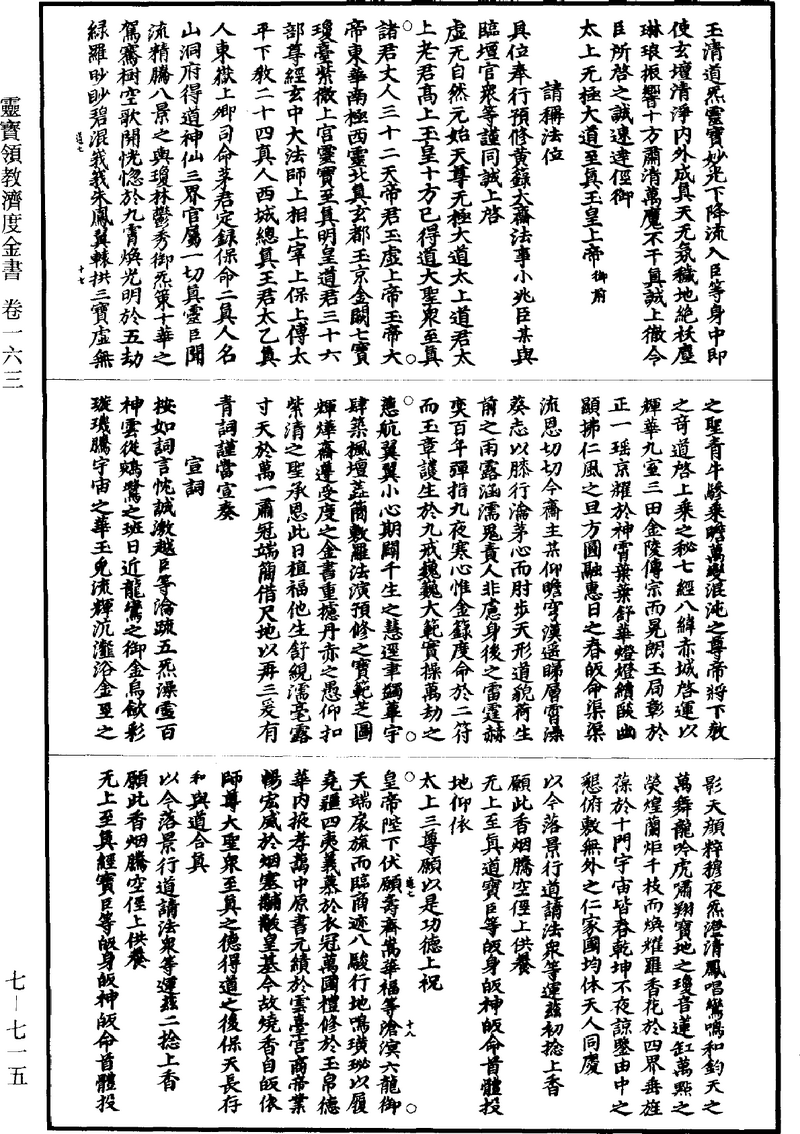 靈寶領教濟度金書 卷一六三
七—七一五
玉清道炁靈寶妙光下降流入臣等身中即
使玄壇清淨內外成真天无氛穢地絕袄塵
琳琅振響十方肅清萬魔不干真誠上徹令
臣所啓之誠速達徑御
太上无極大道至真玉皇上帝御前
請稱法位
具位奉行預修黃籙大齋法事小兆臣某與
臨壇官衆等謹同誠上啓
虛无自然元始天尊无極大道太上道君太
上老君高上玉皇十方已得道大聖衆至真
諸君丈人三十二天帝君玉虛上帝玉帝大
帝東華南極西靈北真玄都玉京金闕七寶
瓊臺紫微上宮靈寶至真明皇道君三十六
部尊經玄中大法師上相上宰上保上傅太
平下教二十四真人西城總真王君太乙真
人東嶽上卿司命茅君定錄保命二真人名
山洞府得道神仙三界官屬一切真靈臣聞
流精騰八景之輿瓊林鬱秀御炁策十華之
駕騫樹空歌開恍惚於九霄煥光明於五劫
綠羅眇眇碧混我我朱鳳翼轅拱三寶虛無
道七
十七
之聖青牛驂乘瞻萬變混沌之尊帝將下教
之奇道啓上乘之秘七經八緯赤城啓運以
輝華九室三田金陵傳宗而晃朗玉局彰於
正一瑤京耀於神霄葉葉舒華燈燈續燄幽
顯拂仁風之旦方圓融惠日之春皈命渠渠
流恩切切今齋主某仰瞻穹漢遥睇層霄澡
葵志以膝行瀹茅心而肘步天形道貌荷生
前之雨露涵濡鬼責人非慮身後之雷霆赫
奕百年彈指九夜寒心惟金籙度命於二符
而玉章護生於九戒巍巍大範實操萬劫之
慈航翼翼小心期闢千生之慧逕聿蠲華宇
肆築楓壇蕋簡敷羅法演預修之寶範芝圖
輝燁齋遵受度之金書重攄丹赤之愚仰扣
紫清之聖承恩此日植福他生舒綐濡毫露
寸天於萬一肅冠端簡借尺地以再三爰有
青詞謹當宣奏
宣詞
按如詞言忱誠激越臣等淪䟽五炁澡雪百
神雲從鵷鷺之班日近龍鸞之御金烏斂彩
璇璣騰宇宙之華玉兔流輝沆瀣浴金莖之
影天顏粹穆夜炁澄清鳳唱鸞鳴和鈞天之
萬舞龍吟虎嘯翔寶地之瓊音蓮缸萬點之
熒煌蘭炬千枝而煥耀羅香花於四界垂旌
葆於十門宇宙皆春乾坤不夜諒鑒由中之
懇俯敷無外之仁家國均休天人同慶
以今落景行道請法衆等運茲初捻上香
願此香烟騰空徑上供養
无上至真道寶臣等皈身皈神皈命首體投
地仰依
太上三尊願以是功德上祝
皇帝陛下伏願壽齊嵩華福等滄溟六龍御
道七
十八
天端扆旒而臨商迹八駿行地鳴璜珌以履
堯疆四夷義慕於衣冠萬國禮修於玉帛德
華內掖孝藹中原書元績於雲臺宮商帝業
暢宏威於烟塞黼黻皇基今故燒香自皈依
師尊大聖衆至真之德得道之後保天長存
和與道合真
以今落景行道請法衆等運茲二捻上香
願此香烟騰空徑上供養
无上至真經寶臣等皈身皈神皈命首體投